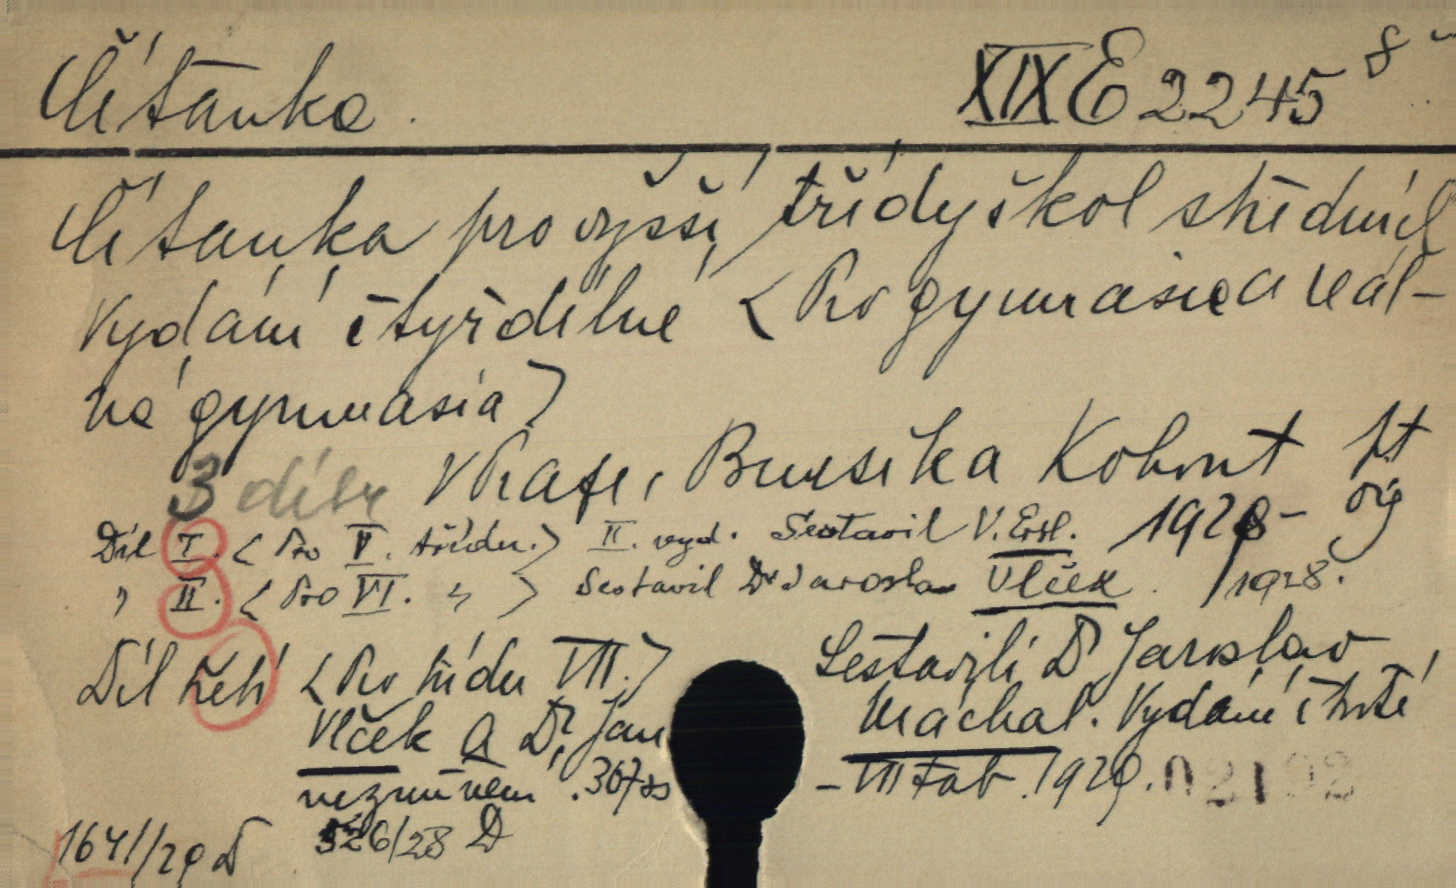 Čítanka. XIX E 2245 8°
Čítanka pro vyšší třídy škol středních
Vydání čtyřdílné <Pro gymnasia a reál-
ná gymnasia>
3 díly V Praze, Bursíka Kohout
Díl I. <Pro V. třídu.> II. vyd. Sestavil V. Ertl. 1928-
" II. <Pro VI. "> Sestavil Dr Jaroslav Vlček. 1928.
Díl třetí <Pro třídu VII.> Sestavili Dr Jaroslav
Vlček a Dr. Jan Máchal. Vydání čtvrté
nezměněné. 367 ss - VII tab. 1929. 02192
1641/29 D 526/28 D